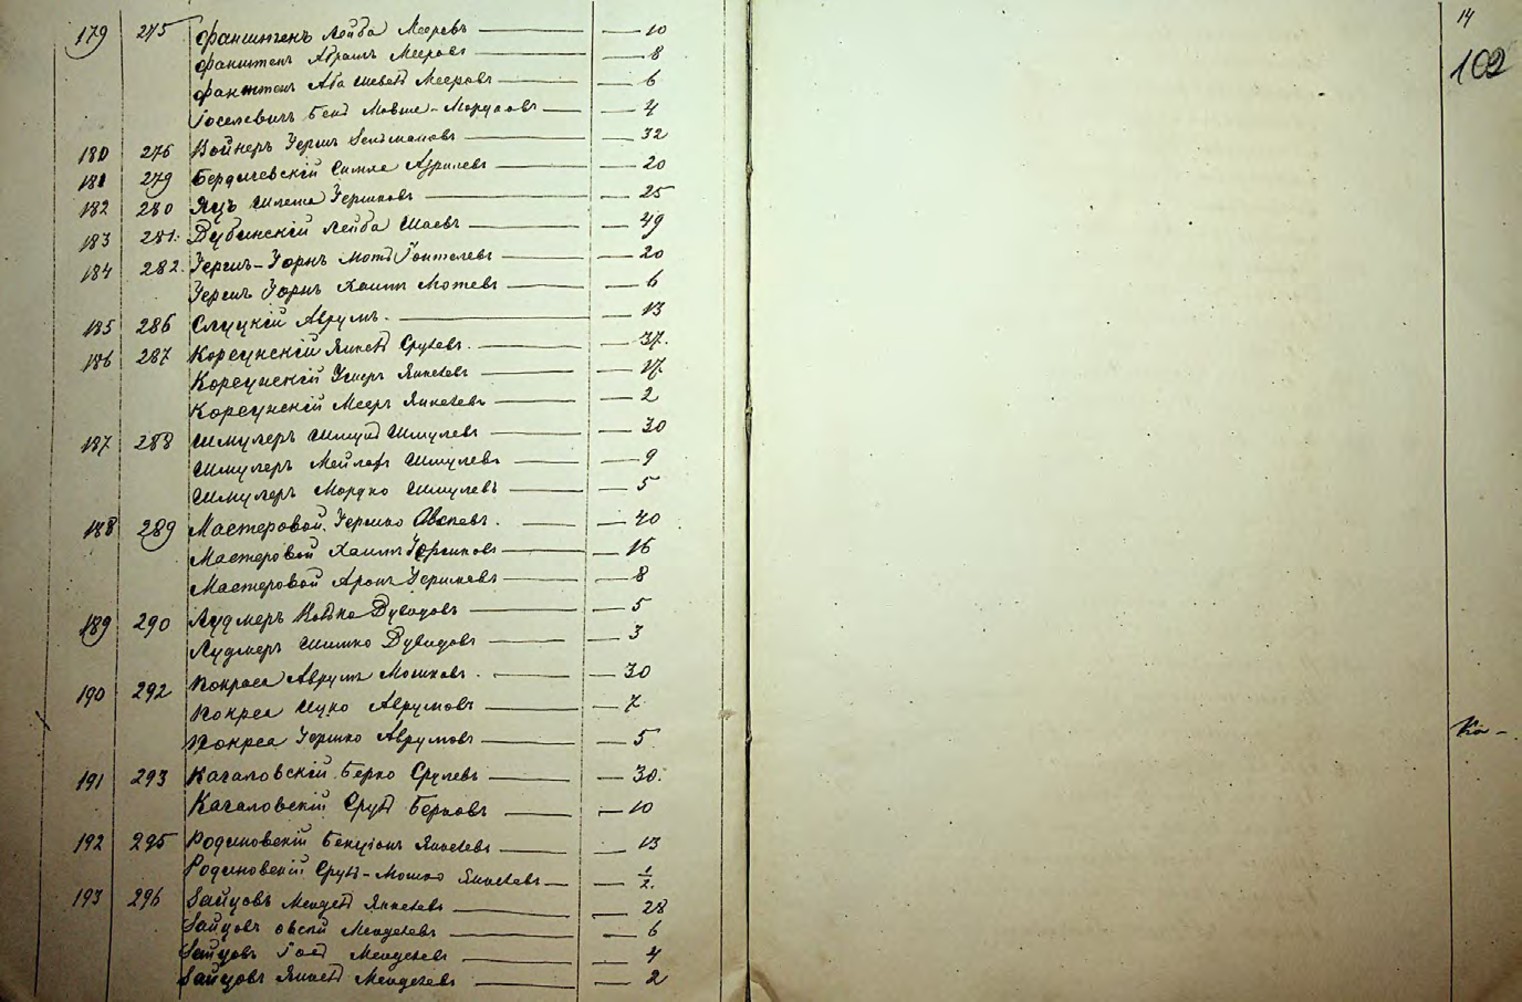 14
102
179 275 Фанштенъ Лейба Мееровъ — 10
Фанштенъ Абрамъ Мееровъ — 8
Фанштенъ Аба Мееровъ — 6
Іоселевичъ Мовше- — 4
180 276 Войнеръ Гершъ Зельмановъ — 32
181 279 Бердичевскій Симха Азрилевъ — 20
182 280 Яцъ Шлема Гершковъ — 25
183 281. Дубинскій Лейба Шаевъ — 49
184 282. Гершъ-Горнъ — 20
Герш Горнъ Хаимъ Мотевъ — 6
185 286 Слуцкій Аврумъ. — 13
186 287 Корсунскій Янкель Срулевъ. — 37.
Корсунскій Янкелевъ — 17
Корсунскій Мееръ Янкелевъ — 2
187 288 Шмулеръ Шмуль Шмулевъ — 30
Шмулеръ Мейлахъ Шмулевъ — 9
Шмулеръ Мордко Шмулевъ — 5
188 289 Мастеровой Гершко Овсіевъ. — 40
Мастеровой Хаимъ Гершковъ — 16
Мастеровой Аронъ Гершковъ — 8
189 290 Лудмеръ Дувидовъ — 5
Лудмеръ Шимко Дувидовъ — 3
190 292 Кокраса Аврумъ Мошковъ. — 30
Ицко Аврумовъ — 7
Гершко Аврумовъ — 5
191 293 Качаловскій Берко Срулевъ — 30.
Качаловскій Сруль Берковъ — 10
192 295 Родиновскій Бенціонъ Янкелевъ — 13
Родиновскій Сруль-Мошко Янкелевъ — 1/2.
193 296 Зайцовъ Мендель Янкелевъ — 28
Зайцовъ Овсій Менделевъ — 6
Зайцовъ Менделевъ — 4
Зайцовъ Янкель Менделевъ — 2